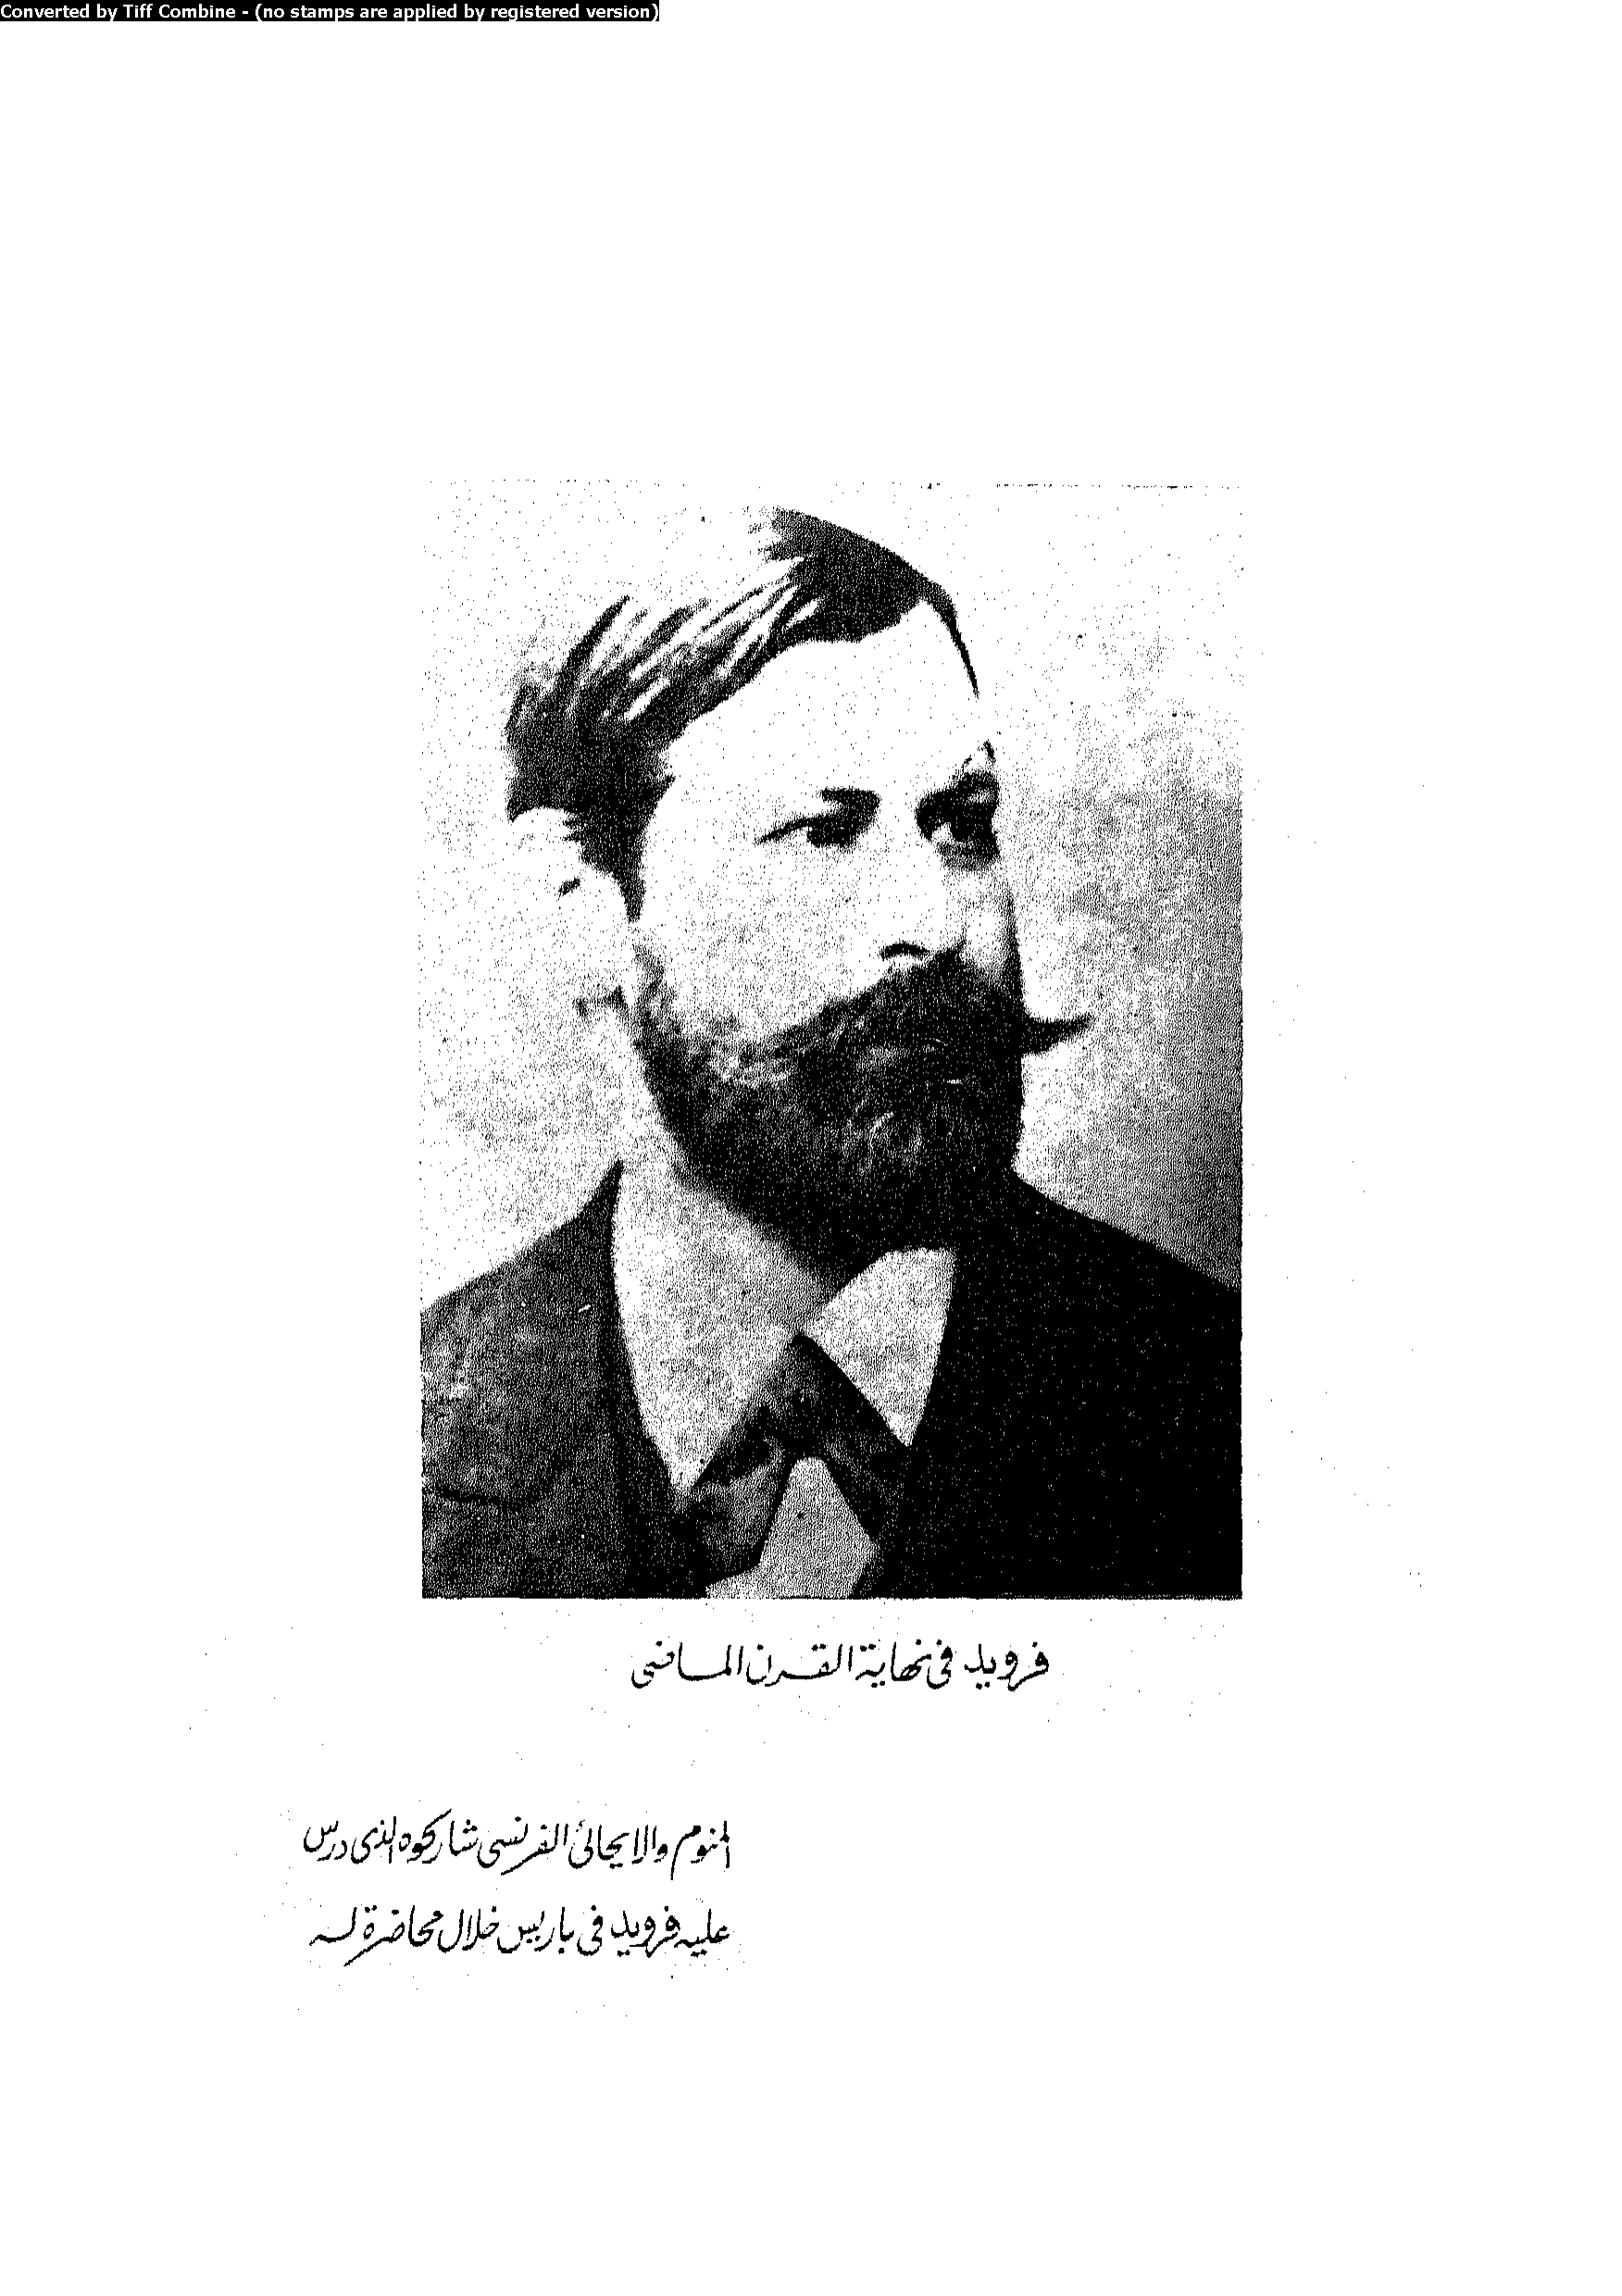 Converted by Tiff Combine - (no stamps are applied by registered version)
فرويد فى نهاية القرن الماضى
المنوم والايحائى الفرنسى شاركوه الذى درس
عليه فرويد فى باريس خلال محاضرة له